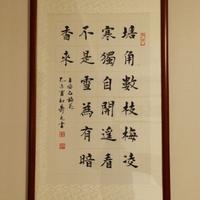 墻角數枝梅凌
寒獨自開遥看
不是雪為有暗
香來
王安石梅花